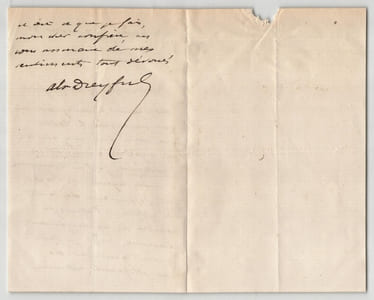 ce que je fais,
mon cher confrère en
vous assurant de mes
sentiments tout dévoués
Dreyfus